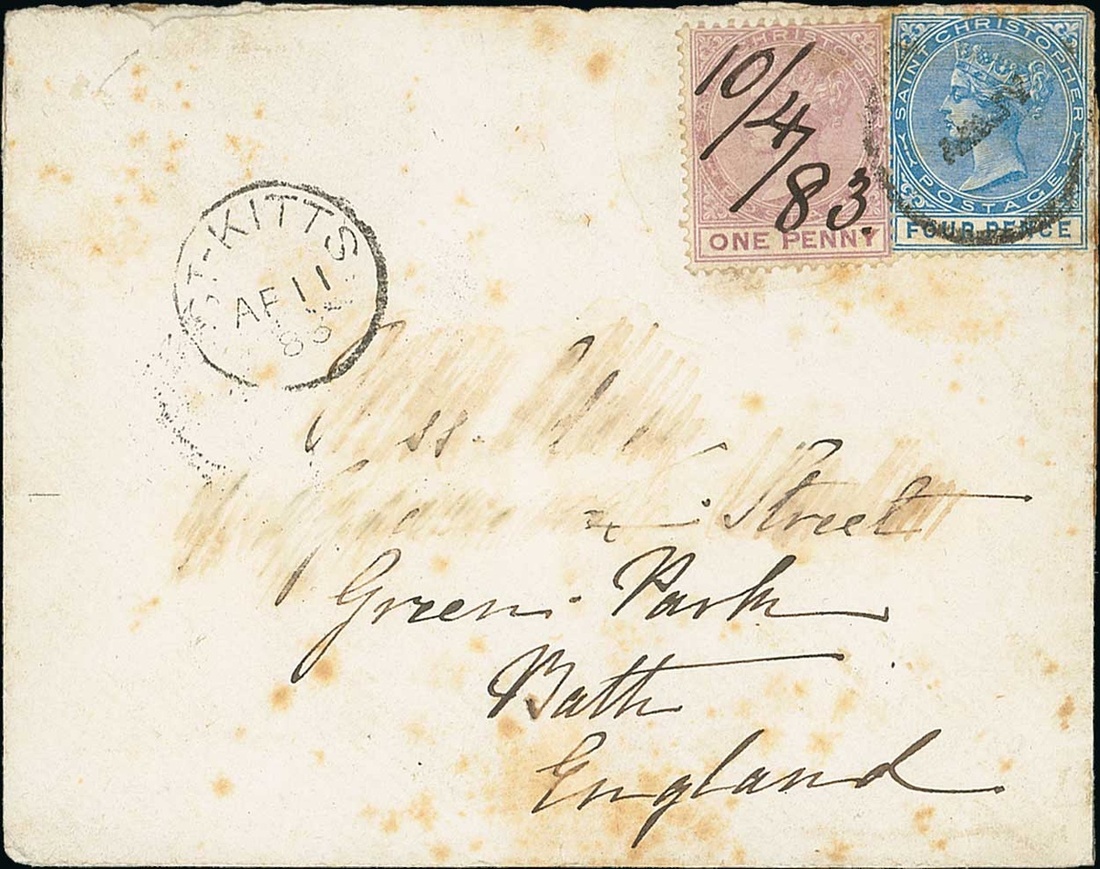 SAINT CHRISTOPHER
POSTAGE
FOUR PENCE
CHRISTOPHER
ONE PENNY
10/4/83.
ST-KITTS
AP 11
83
Street
Green Park
Bath
England